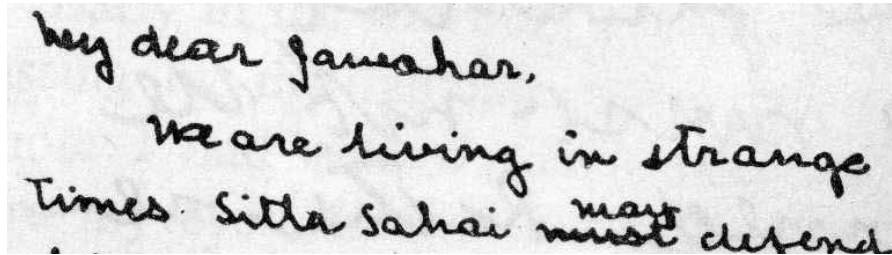 My dear Jawahar,
We are living in strange
Times. Sitla Sahai may defend